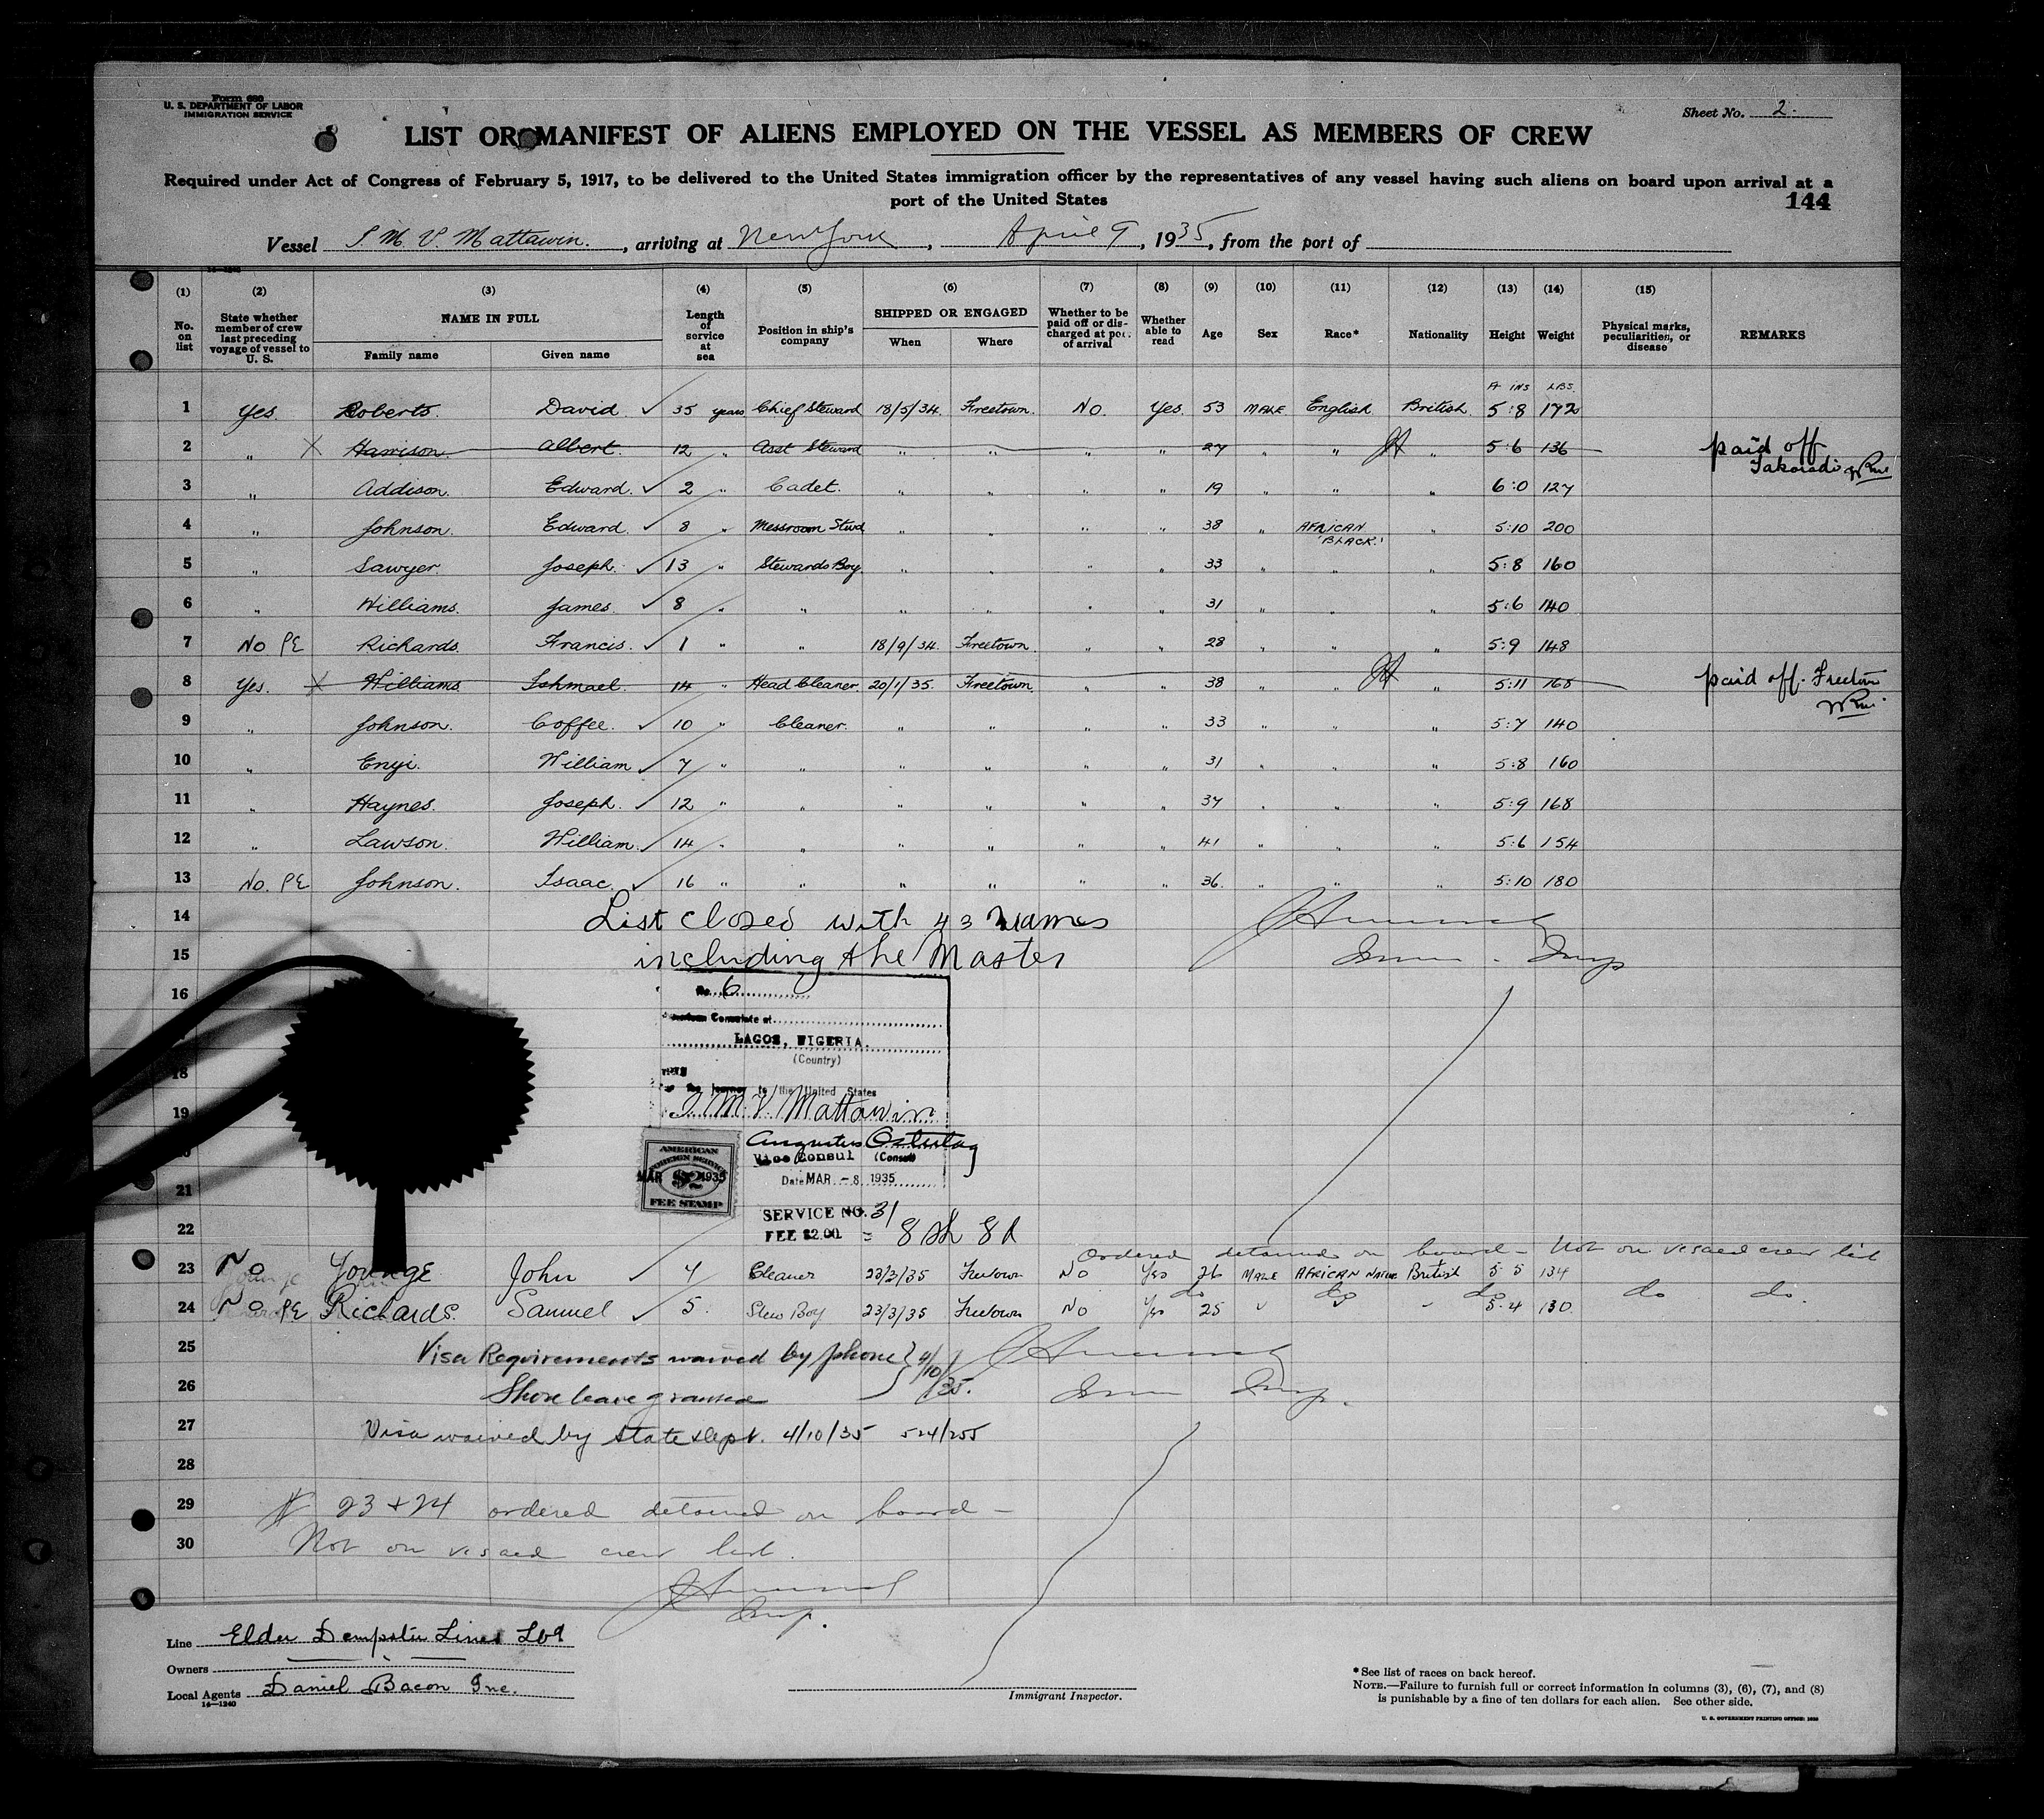 Form 680
U. S. DEPARTMENT OF LABOR
IMMIGRATION SERVICE
Sheet No. 2.
LIST OR MANIFEST OF ALIENS EMPLOYED ON THE VESSEL AS MEMBERS OF CREW
Required under Act of Congress of February 5, 1917, to be delivered to the United States immigration officer by the representatives of any vessel having such aliens on board upon arrival at a
port of the United States
144
Vessel S. M. V. Mattawin., arriving at New York, April 9, 1935, from the port of
(1) (2) (3) (4) (5) (6) (7) (8) (9) (10) (11) (12) (13) (14) (15)
No. on list
State whether member of crew last preceding voyage of vessel to U. S.
NAME IN FULL
Family name
Given name
Length of service at sea
Position in ship's company
SHIPPED OR ENGAGED
When
Where
Whether to be paid off or discharged at port of arrival
Whether able to read
Age
Sex
Race*
Nationality
Height
Weight
Physical marks, peculiarities, or disease
REMARKS
Ft INS LBS
1 Yes. Roberts. David. ✓ 35 years Chief Steward 18/5/34. Freetown. No. Yes. 53 MALE. English. British. 5:8 172
2 " X Harrison. Albert. 12 " Asst Steward " " " " 27 " " " 5:6 136 paid off Takoradi
3 " Addison. Edward. ✓ 2 " Cadet. " " " " 19 " " " 6:0 127
4 " Johnson. Edward. ✓ 8 " Messroom Stwd " " " " 38 " AFRICAN 'BLACK.' " 5:10 200
5 " Sawyer. Joseph. ✓ 13 " Stewards Boy. " " " " 33 " " " 5:8 160
6 " Williams. James. ✓ 8 " " " " " " 31 " " " 5:6 140
7 No PE Richards. Francis. ✓ 1 " " 18/9/34. Freetown. " " 28 " " " 5:9 148
8 Yes. X Williams. Ishmael. 14 " Head Cleaner. 20/1/35. Freetown. " " 38 " " " 5:11 168 paid off. Freetown
9 " Johnson. Coffee. ✓ 10 " Cleaner. " " " " 33 " " " 5:7 140
10 " Enyi. William ✓ 7 " " " " " " 31 " " " 5:8 160
11 " Haynes. Joseph. ✓ 12 " " " " " " 37 " " " 5:9 168
12 " Lawson. William. ✓ 14 " " " " " " 41 " " " 5:6 154
13 No. PE Johnson. Isaac. ✓ 16 " " " " " " 36. " " " 5:10 180
14 List closed with 43 names
15 including the Master
16
No. 6
American Consulate at
LAGOS, NIGERIA.
(Country)
18
for the journey to the United States
19
S.M.V. Mattawin
Vice Consul (Consul
21
Date MAR -8 1935
AMERICAN
FOREIGN SERVICE
MAR $2 1935
FEE STAMP
22
SERVICE NO. 31
FEE $2.00 = 8 sh 8 d
Ordered detained on board - Not on visaed crew list
23 No Younge John ✓ 4 Cleaner 23/3/35 Freetown No Yes 26 MALE AFRICAN NATIVE British 5 5 134
do do do do do.
24 No PE Richards. Samuel ✓ 5. Stew Boy 23/3/35 Freetown No Yes 25 " " 5.4 130.
25 Visa Requirements waived by phone } 4/10/35.
26 Shore leave granted
27 Visa waived by State Dept. 4/10/35 524/255
28
29 # 23 + 24 ordered detained on board -
30 Not on visaed crew list.
Insp.
Line Elder Dempster Lines Ltd
Owners
Local Agents Daniel Bacon Inc.
14—1240
Immigrant Inspector.
*See list of races on back hereof.
NOTE.—Failure to furnish full or correct information in columns (3), (6), (7), and (8)
is punishable by a fine of ten dollars for each alien. See other side.
U. S. GOVERNMENT PRINTING OFFICE: